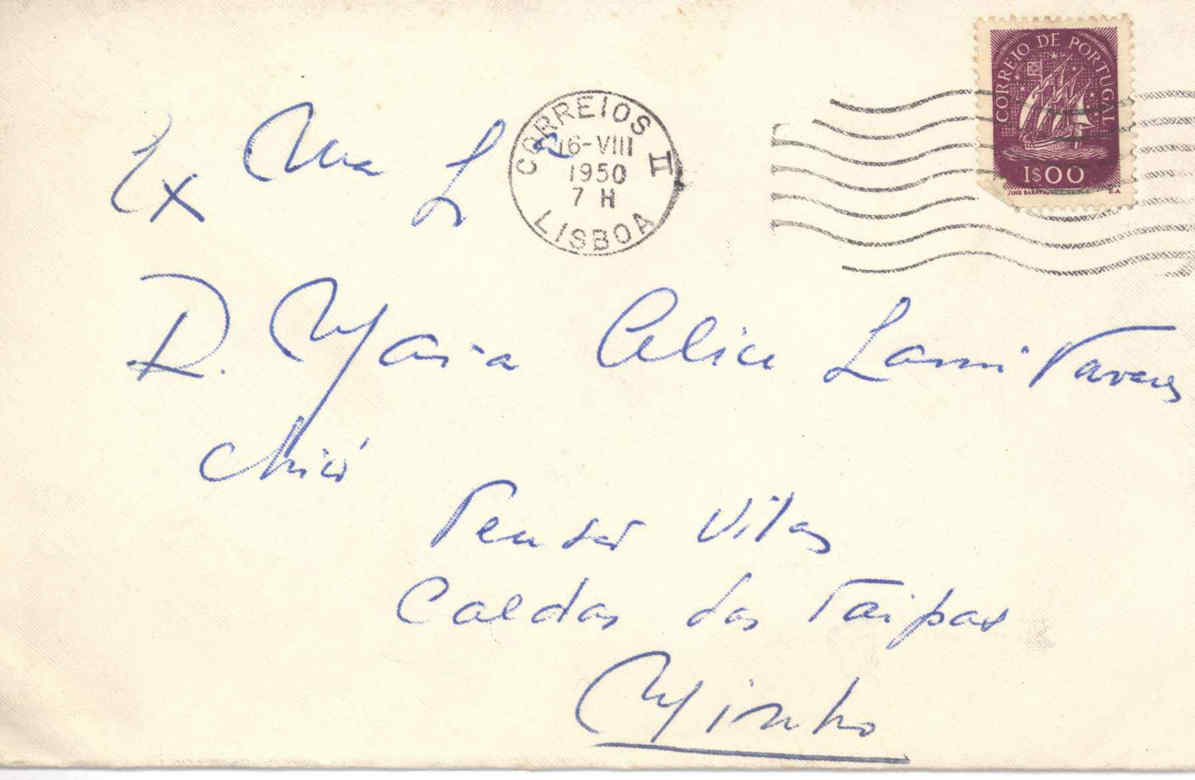 CORREIO DE PORTUGAL
1$00
CORREIOS II
16-VIII
1950
7 H
LISBOA
Ex Ma
D. Maria Alice Lami Tavares
Chicó
Pensão Vilas
Caldas das Taipas
Minho